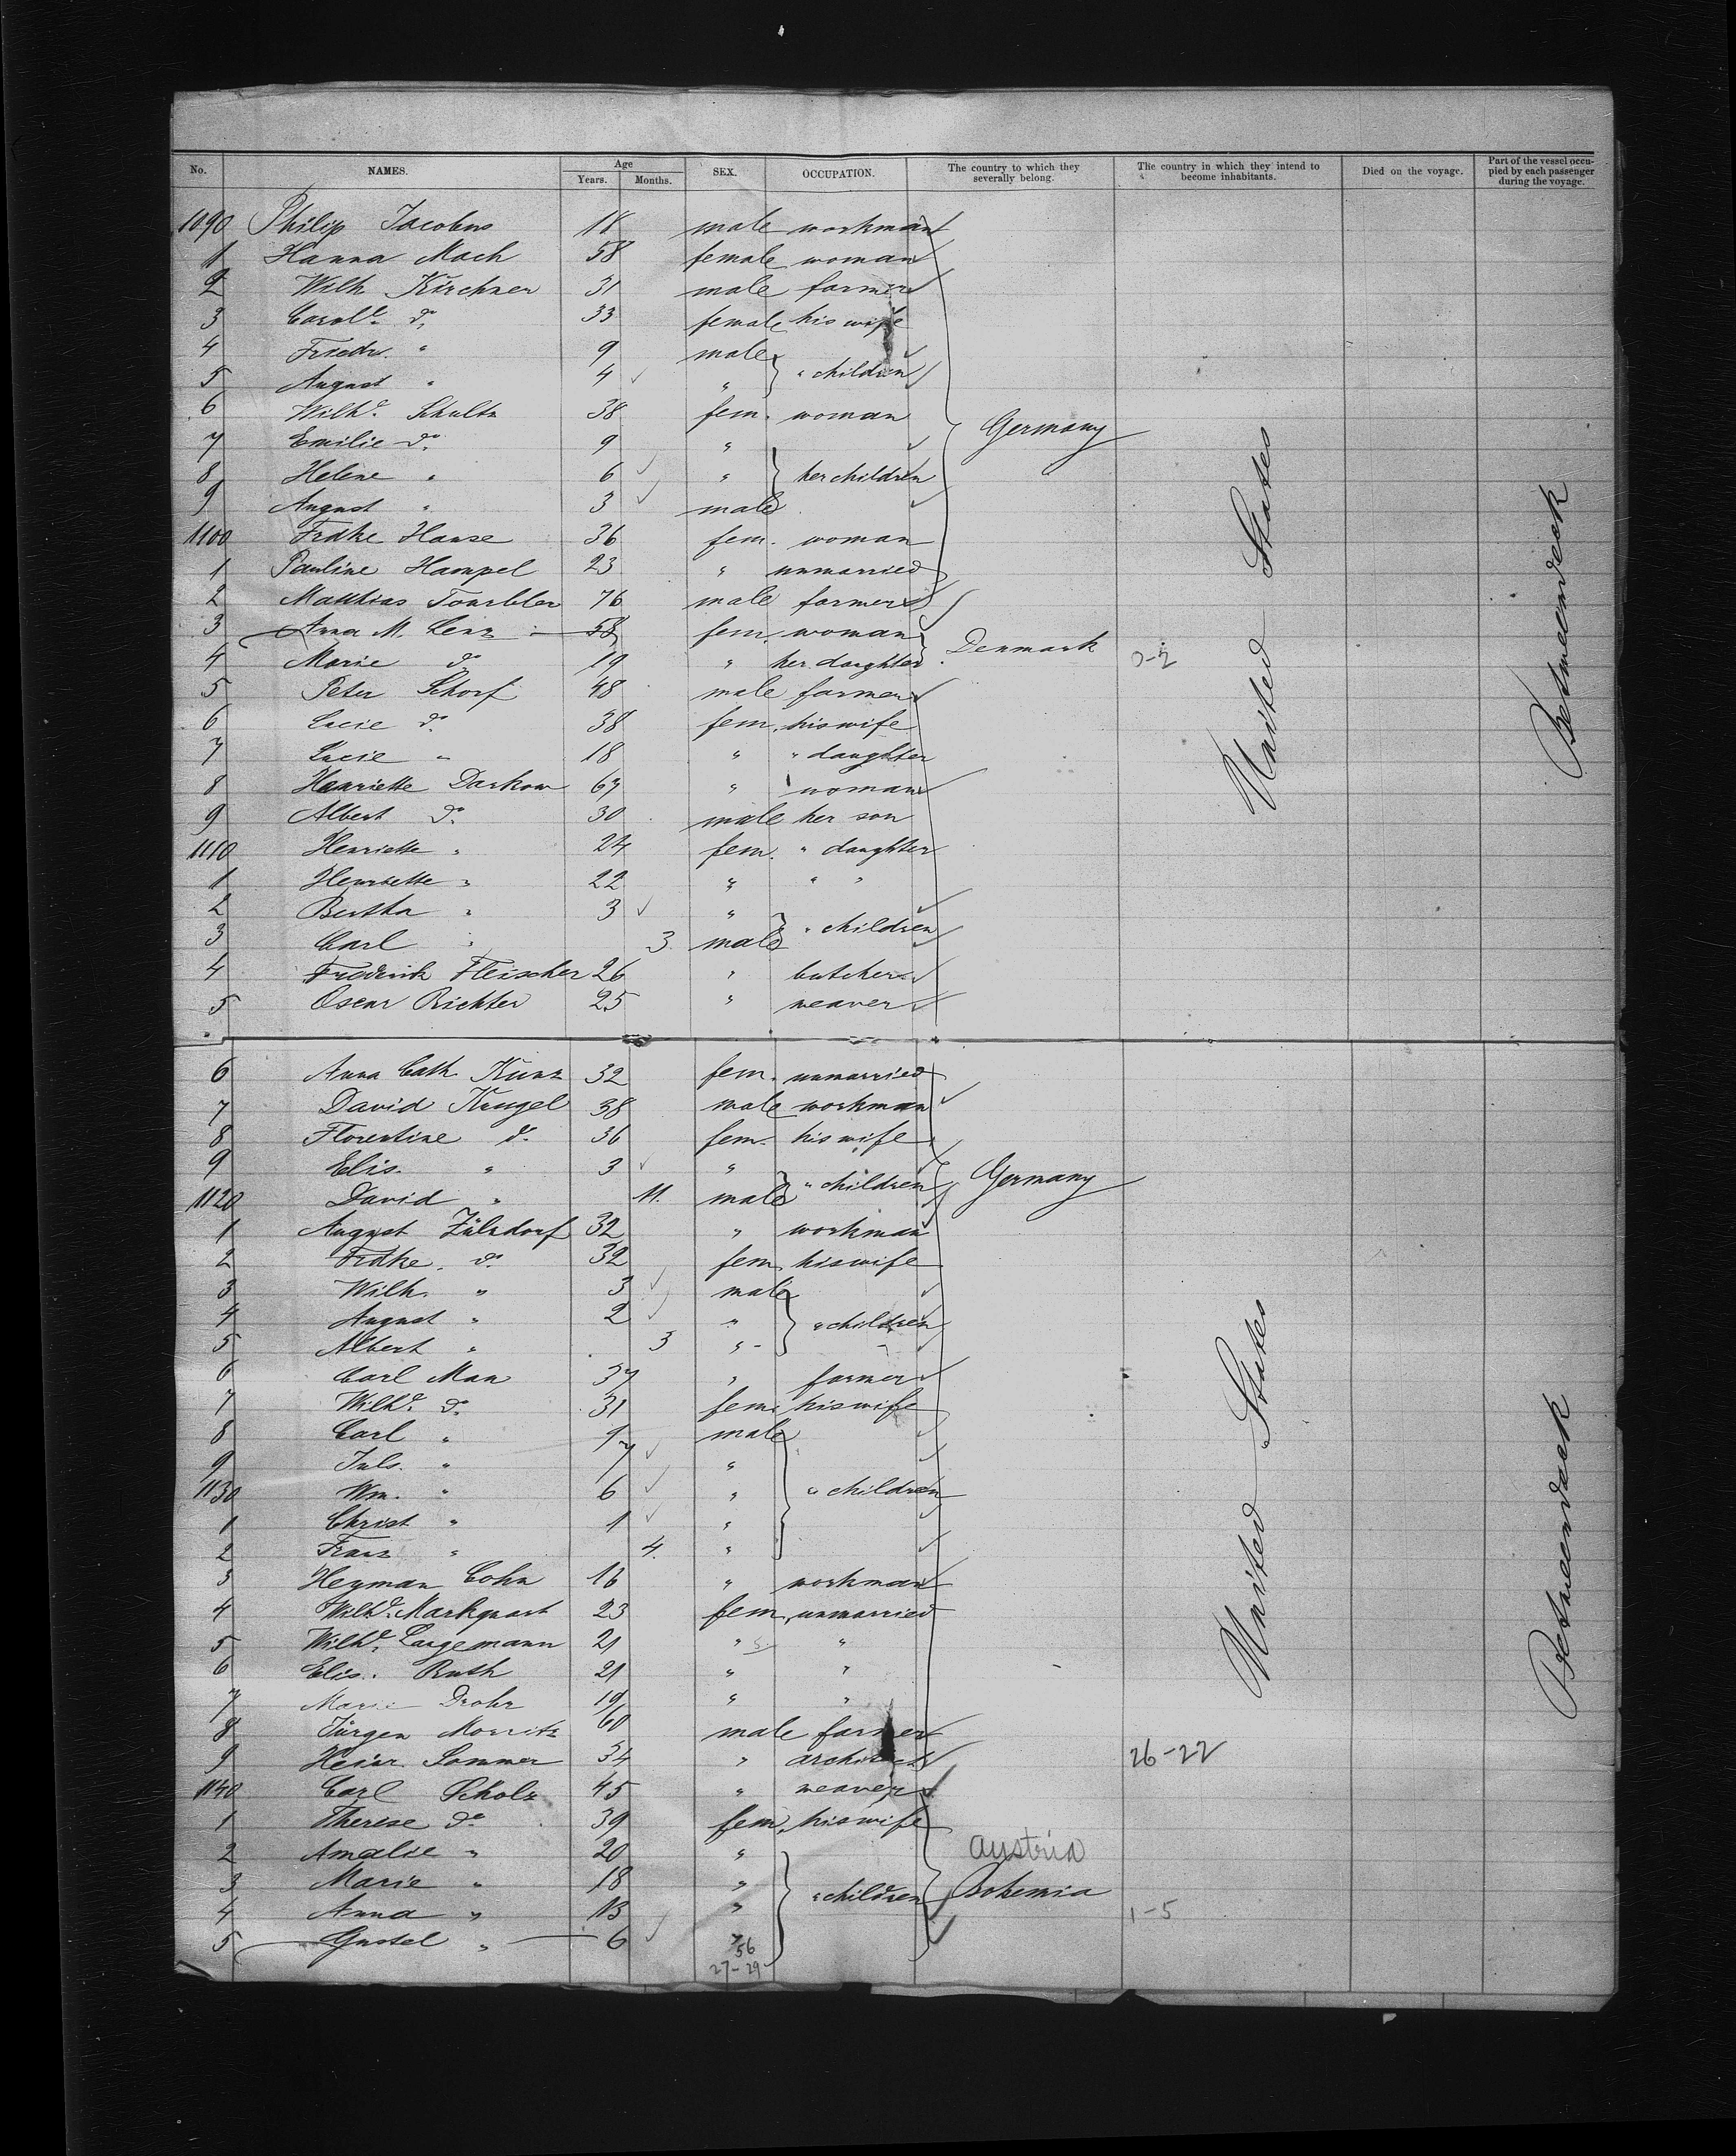 No. NAMES. Age Years. Months. SEX. OCCUPATION. The country to which they severally belong. The country in which they intend to become inhabitants. Died on the voyage. Part of the vessel occupied by each passenger during the voyage.
1090 Philip Jacobus 18 male workman
1 Hanna Mach 58 female woman
2 Wilh Kirchner 31 male farmer
3 Carole. do. 33 female his wife
4 Friedr. " 9 male
5 August " 4 " " children
6 Wilhe. Schultz 38 fem. woman Germany
7 Emilie do. 9 "
8 Helene " 6 " her children
9 August " 3 male
1100 Fridke Hanse 36 fem. woman
1 Pauline Hampel 23 " unmarried
2 Matthias 76 male farmer
3 Anna M. Lenz 58 fem. woman Denmark
4 Marie do 19 " her daughter 0-2
5 Peter Schorf 48 male farmer
6 Lucie do. 38 fem. his wife
7 Lucie " 18 " " daughter
8 Henriette Darkow 67 " woman
9 Albert do. 30 male her son
1110 Henriette " 24 fem. " daughter
1 " 22 " " "
2 Bertha " 3 " " children
3 Carl " 3. male
4 Frederik Fleischer 26 " butcher
5 Oscar Richter 25 " weaver
United States
Betweendeck
6 Anna Cath Kunz 32 fem. unmarried
7 David Krugel 38 male workman
8 Florentine do. 36 fem. his wife
9 Elis. " 3 " " children Germany
1120 David " 11. male
1 August Zülsdorf 32 " workman
2 Fridke. do. 32 fem his wife
3 Wilh. " 3 male
4 August " 2 " " children
5 Albert " 3 "
6 Carl Man 37 " farmer
7 Wilhe. do. 31 fem. his wife
8 Carl " 9 male
9 Juls. " 7 "
1130 Wm. " 6 " " children
1 Christ " 1 "
2 Franz " 4. "
3 Heyman Cohn 16 " workman
4 Wilhe. Markquart 23 fem. unmarried
5 Wilhe. Langemann 21 " "
6 Elis. Ruth 21 " "
7 Marie Drohr 19 " "
8 Jürgen Morritz 60 male farmer
9 Heinr. Sommer 34 " architect 26-22
1140 Carl Scholz 45 " weaver
1 Therese do 39 fem. his wife
2 Amalie " 20 " Austria
3 Marie " 18 " " children Bohemia
4 Anna " 13 " 1-5
5 Gustel " 6 "
56
27-29
United States
Betweendeck